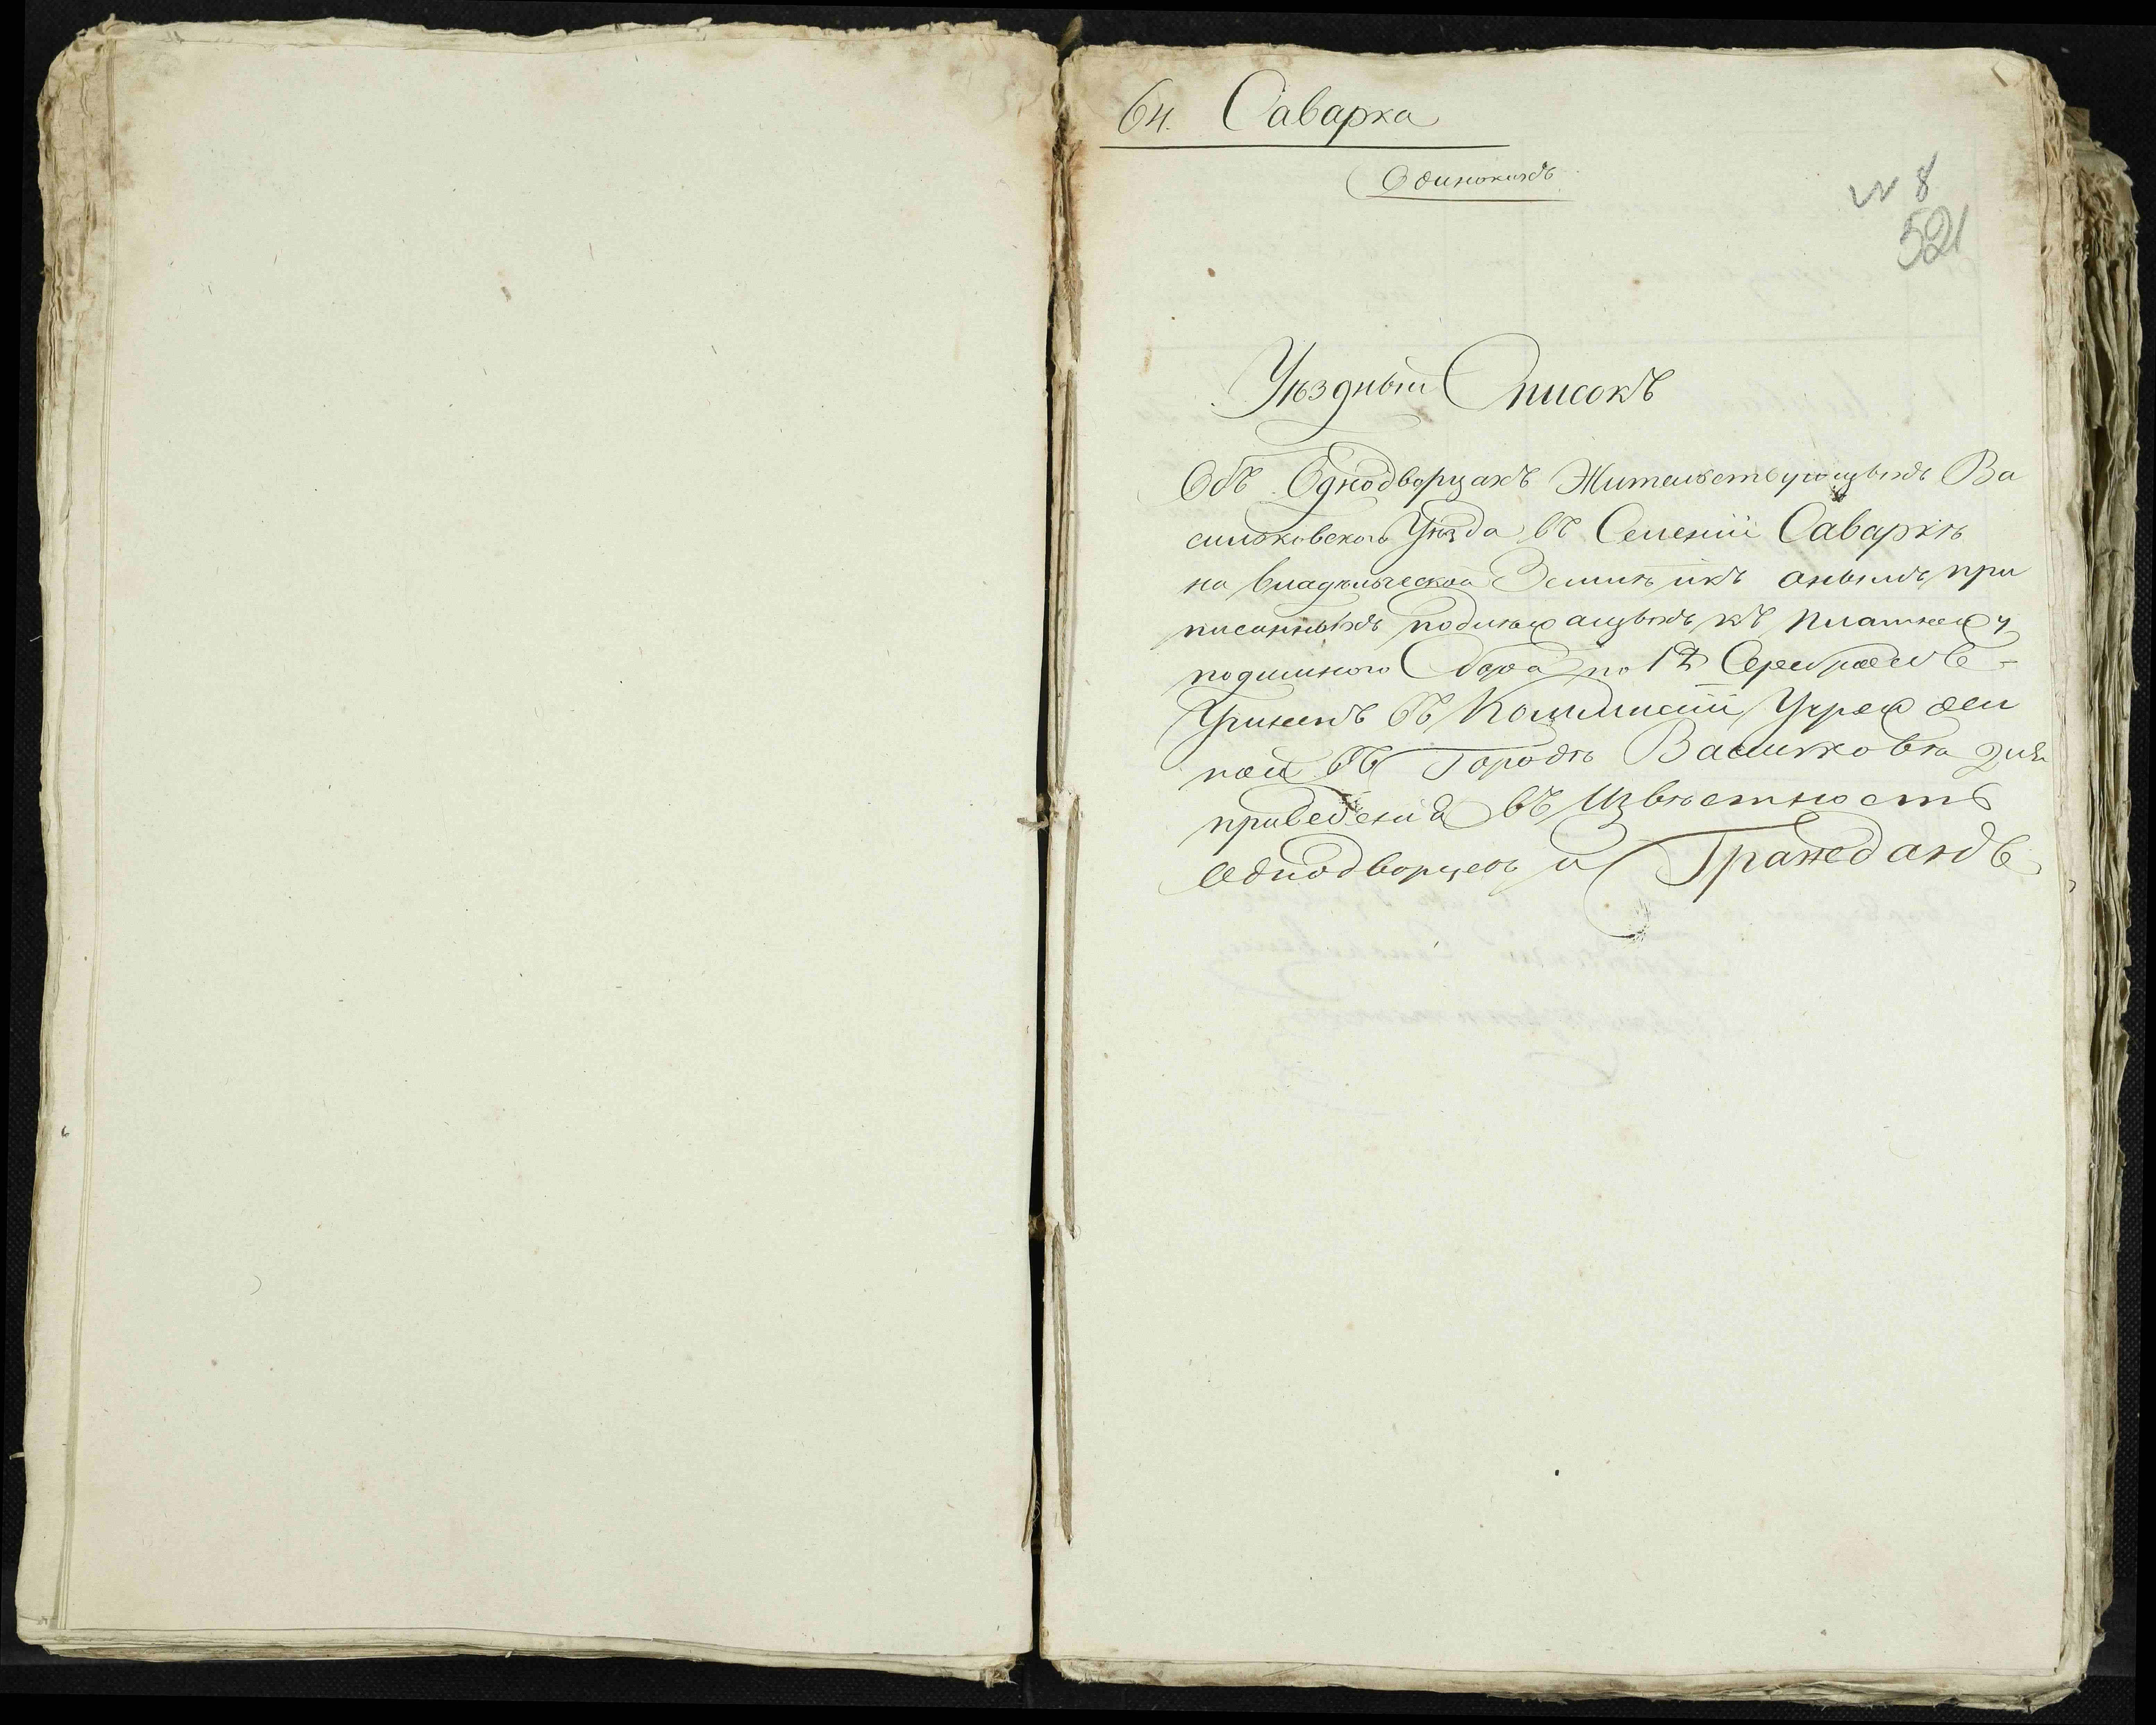 64. Саварка
Одинокихъ
№ 8
521
Уѣздный Списокъ
Объ Однодворцахъ Жительствующихъ Ва
сильковскаго Уѣзда въ Селеніи Саваркѣ
на владѣльческой Землѣ икъ онымъ при
писанныхъ подлежащыхъ къ платежу
подимнаго Сбора по 1 Серебромъ
Учиненъ въ Коммисіи Учрежден
ной въ Городѣ Василковѣ для
приведенія въ Извѣстность
Однодворцевъ и Гражданъ